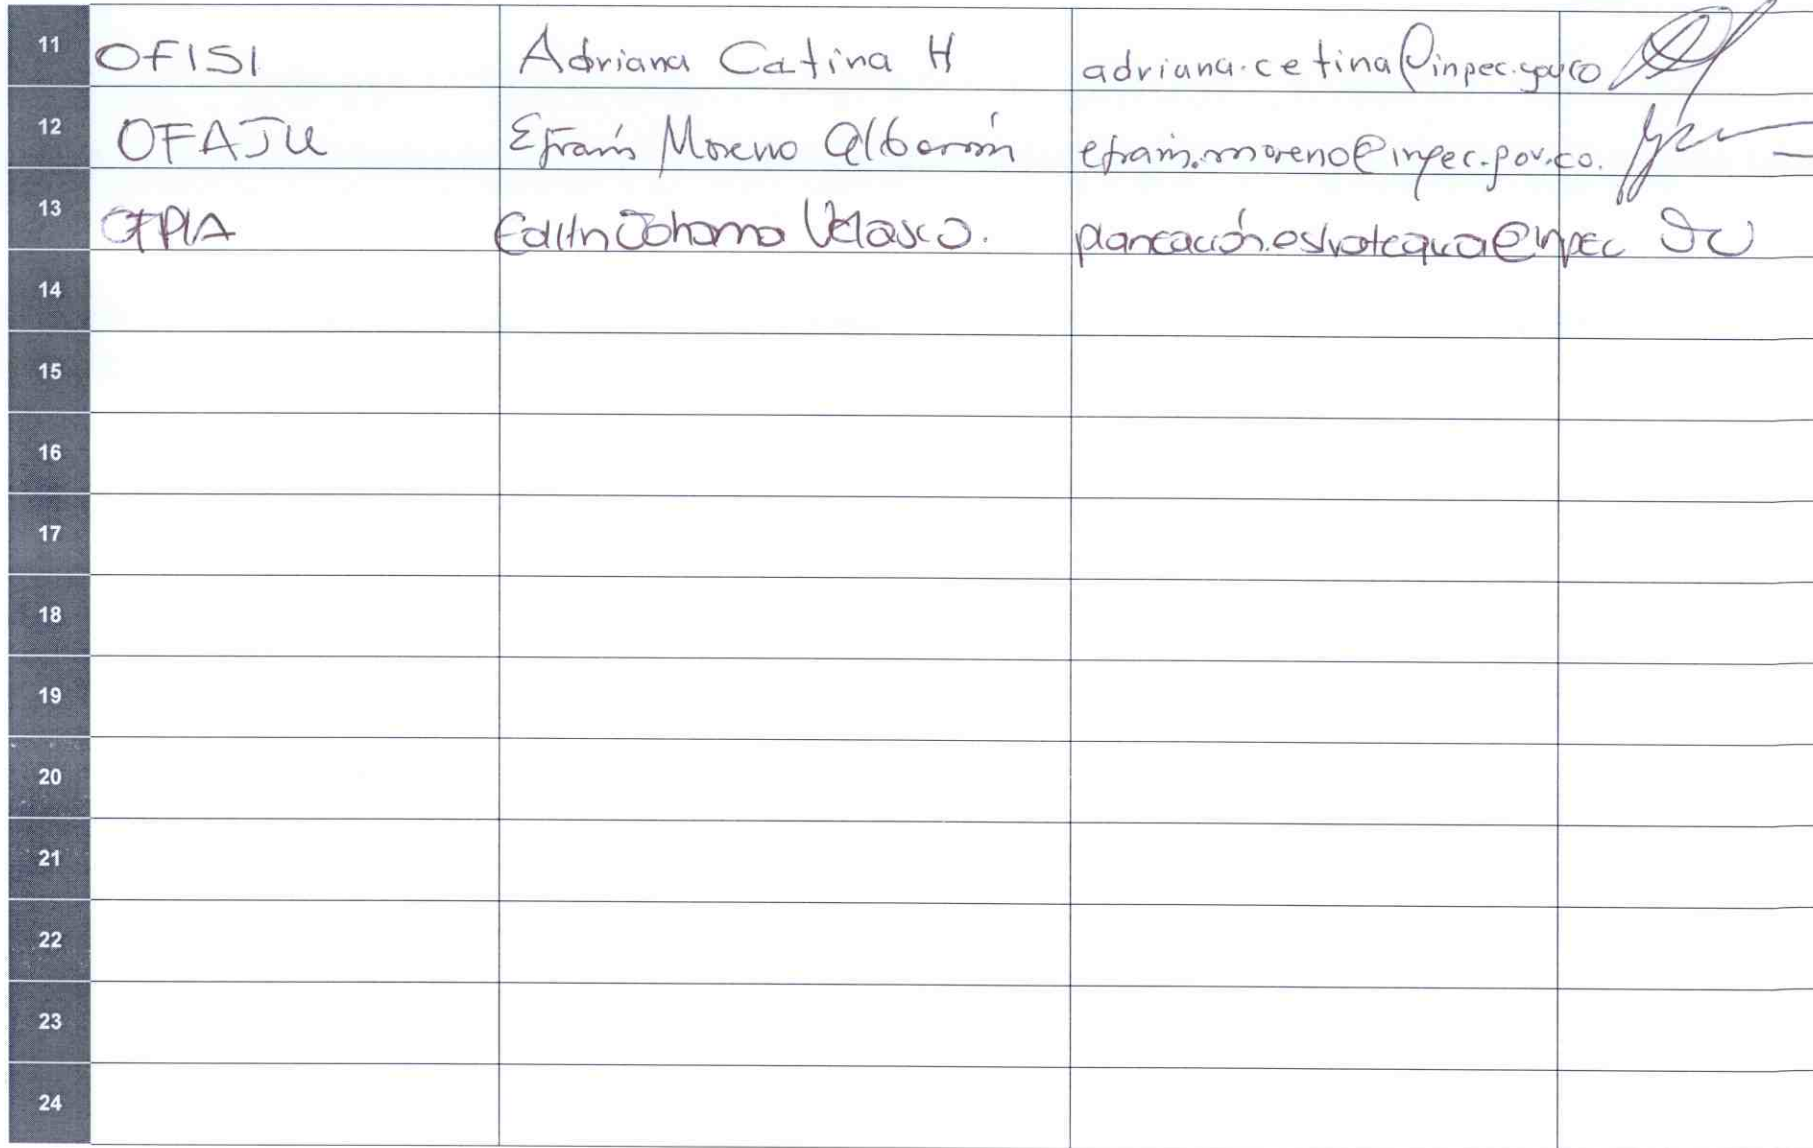 11 OFISI Adriana Catina H adriana.cetina@inpec.gov.co
12 OFAJU Efraín Moreno Albarrín efrain.moreno@inpec.gov.co.
13 OFPLA Edith Johanna Velasco. planeación.estrategica@inpec
14
15
16
17
18
19
20
21
22
23
24